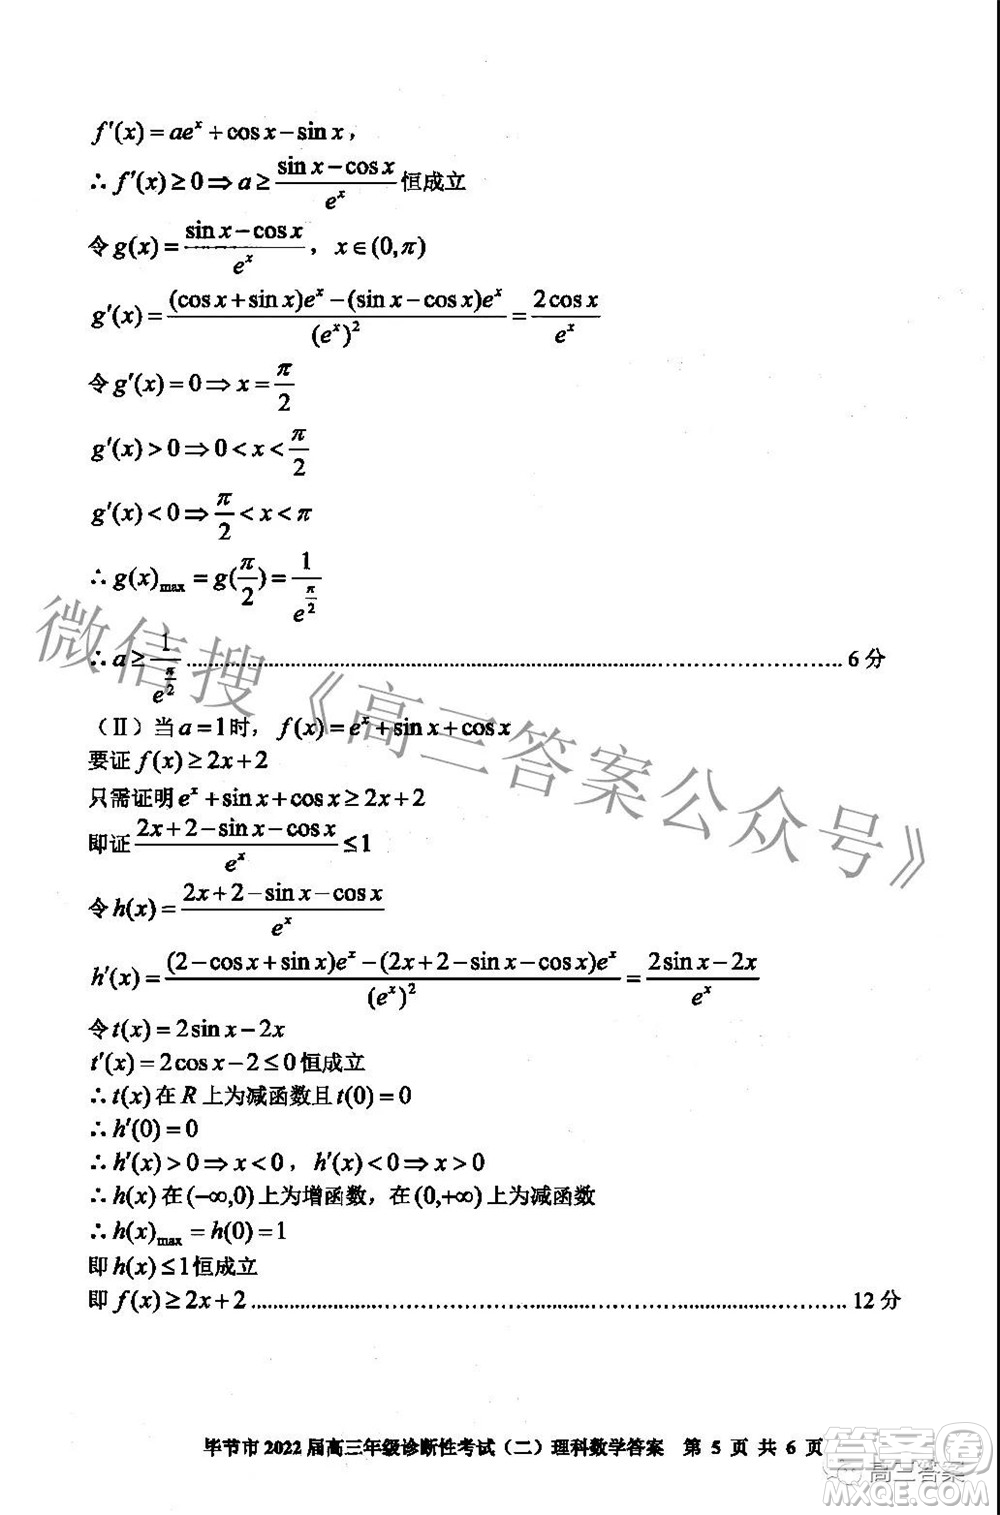 f′(x)=ae^x+cos x−sin x，
∴f′(x)≥0⇒a≥(sin x−cos x)/e^x 恒成立
令g(x)=(sin x−cos x)/e^x，x∈(0,π)
g′(x)=((cos x+sin x)e^x−(sin x−cos x)e^x)/(e^x)^2=2cos x/e^x
令g′(x)=0⇒x=π/2
g′(x)>0⇒0<x<π/2
g′(x)<0⇒π/2<x<π
∴g(x)max=g(π/2)=1/e^(π/2)
∴a≥1/e^(π/2)……6分
（Ⅱ）当a=1时，f(x)=e^x+sin x+cos x
要证f(x)≥2x+2
只需证明e^x+sin x+cos x≥2x+2
即证(2x+2−sin x−cos x)/e^x≤1
令h(x)=(2x+2−sin x−cos x)/e^x
h′(x)=((2−cos x+sin x)e^x−(2x+2−sin x−cos x)e^x)/(e^x)^2=(2sin x−2x)/e^x
令t(x)=2sin x−2x
t′(x)=2cos x−2≤0恒成立
∴t(x)在R上为减函数且t(0)=0
∴h′(0)=0
∴h′(x)>0⇒x<0，h′(x)<0⇒x>0
∴h(x)在(−∞,0)上为增函数，在(0,+∞)上为减函数
∴h(x)max=h(0)=1
即h(x)≤1恒成立
即f(x)≥2x+2……12分
毕节市2022届高三年级诊断性考试（二）理科数学答案 第 5 页 共 6 页
微信搜《高三答案公众号》
高三答案
答案圈
MXQE.COM